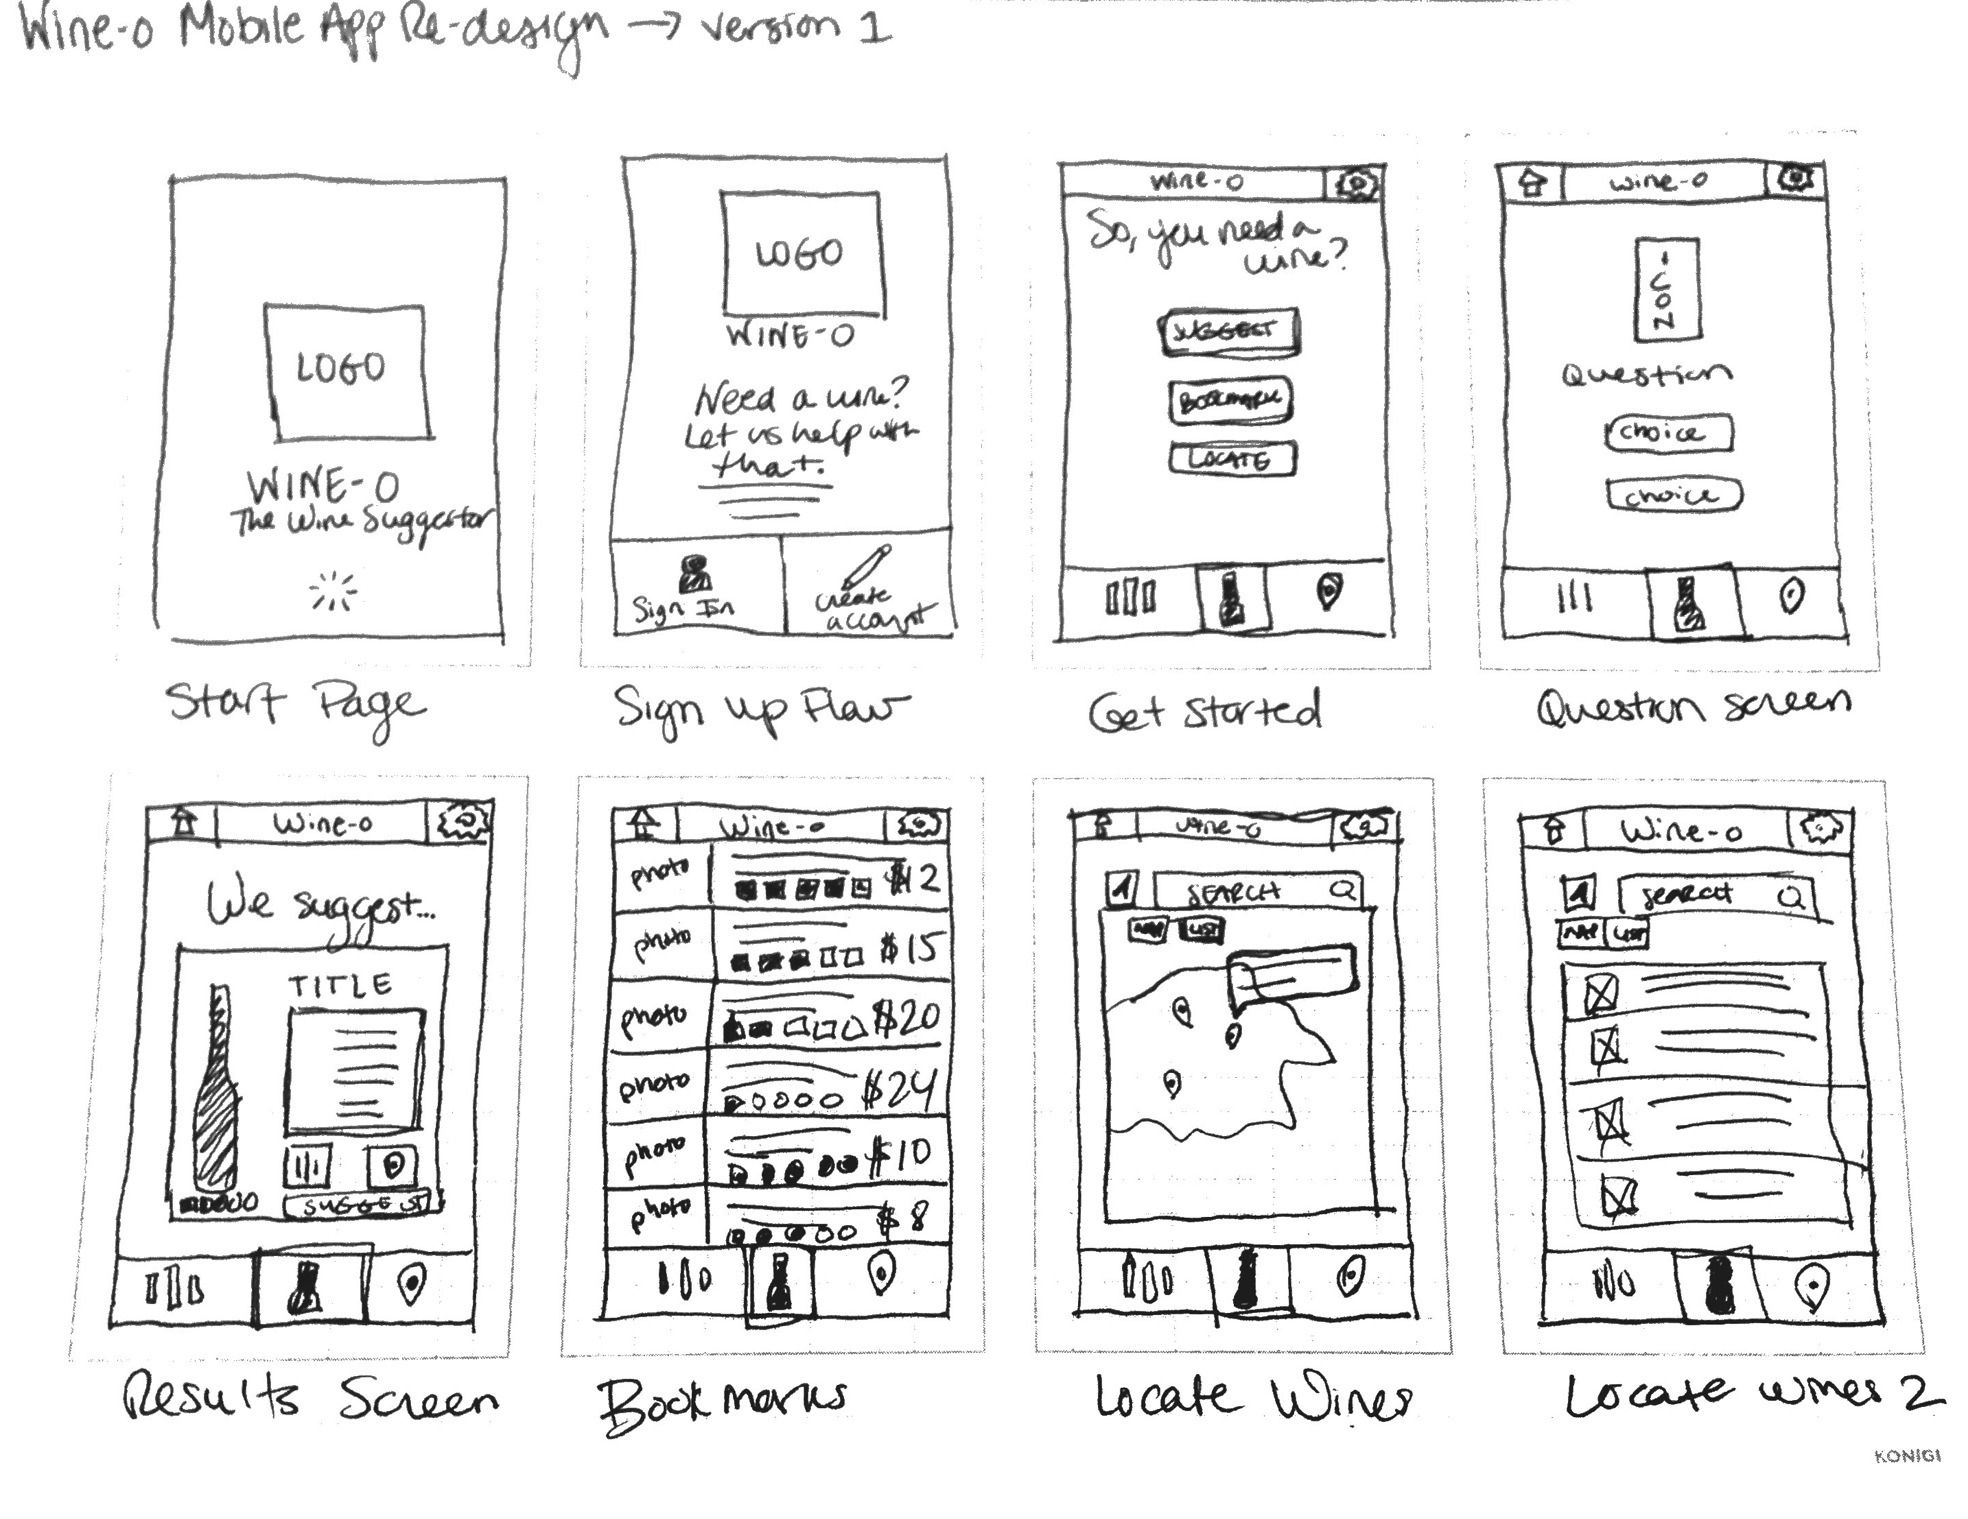 Wine-o Mobile App Re-design → version 1
LOGO
WINE-O
The Wine Suggestor
Start Page
LOGO
WINE-O
Need a wine?
Let us help with
that.
Sign In
create
account
Sign up Flow
Wine-o
So, you need a
wine?
SUGGEST
BOOKMARK
LOCATE
Get Started
Wine-o
ICON
Question
choice
choice
Question screen
Wine-o
We suggest...
TITLE
SUGGEST
Results Screen
Wine-o
photo $12
photo $15
photo $20
photo $24
photo $10
photo $8
Bookmarks
Wine-o
SEARCH
MAP LIST
Locate Wines
Wine-o
SEARCH
MAP LIST
Locate wines 2
KONIGI